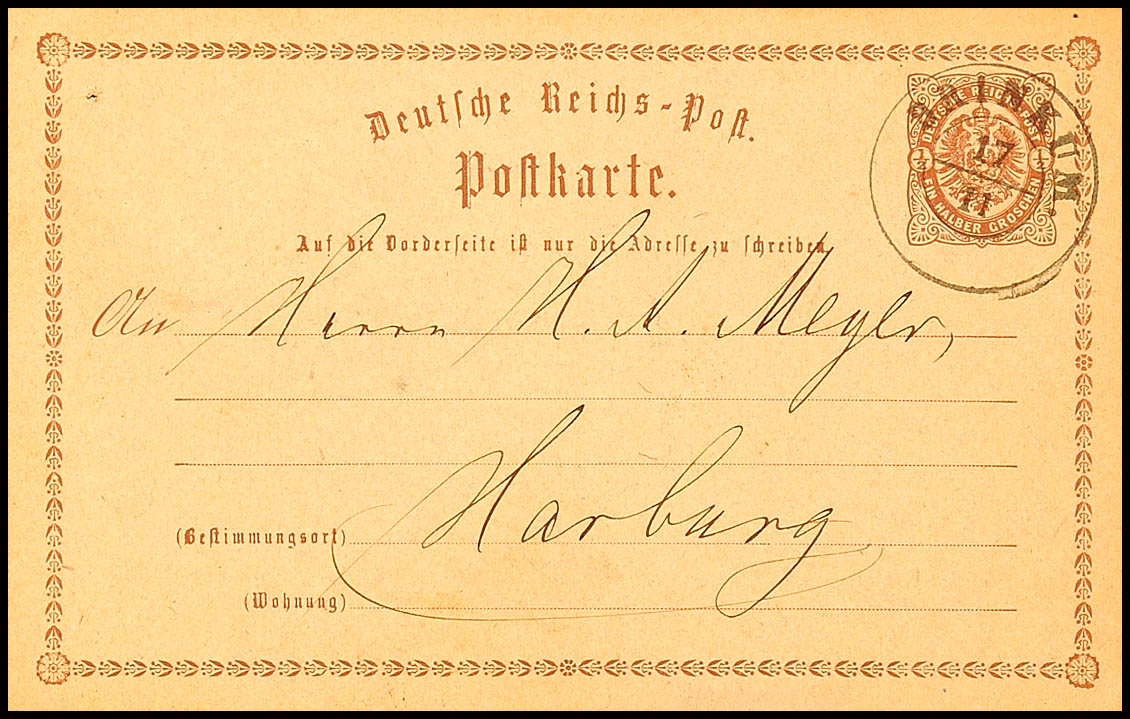 Deutsche Reichs-Post.
Postkarte.
DEUTSCHE REICHS-POST
1/2 1/2
EIN HALBER GROSCHEN
17
11
Auf die Vorderseite ist nur die Adresse zu schreiben
An Herrn H. A. Meyer,
Harburg
(Bestimmungsort)
(Wohnung)